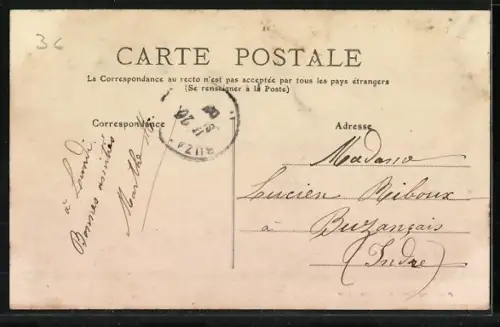 36
CARTE POSTALE
La Correspondance au recto n'est pas acceptée par tous les pays étrangers
(Se renseigner à la Poste)
Correspondance
Adresse
à Lundi
Bonnes amitiés
Marthe
Madame
Lucien Riboux
à Buzançais
(Indre)
BUZA